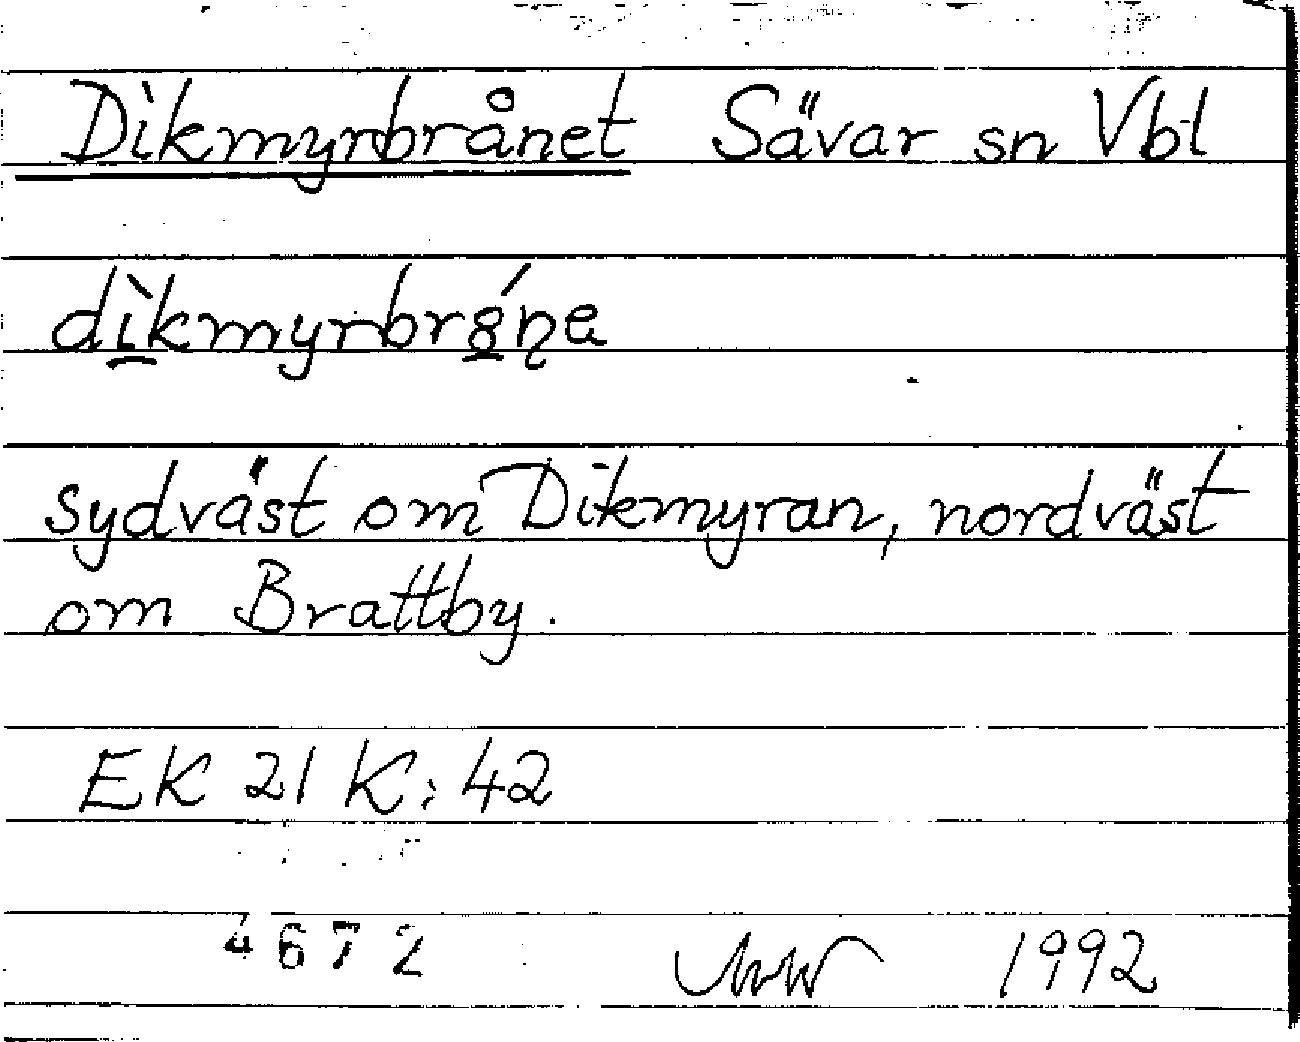 Dikmyrbrånet Sävar sn Vbl
dìkmyrbrǻṇe
sydväst om Dikmyran, nordväst
om Brattby.
EK 21 K: 42
4672 1992